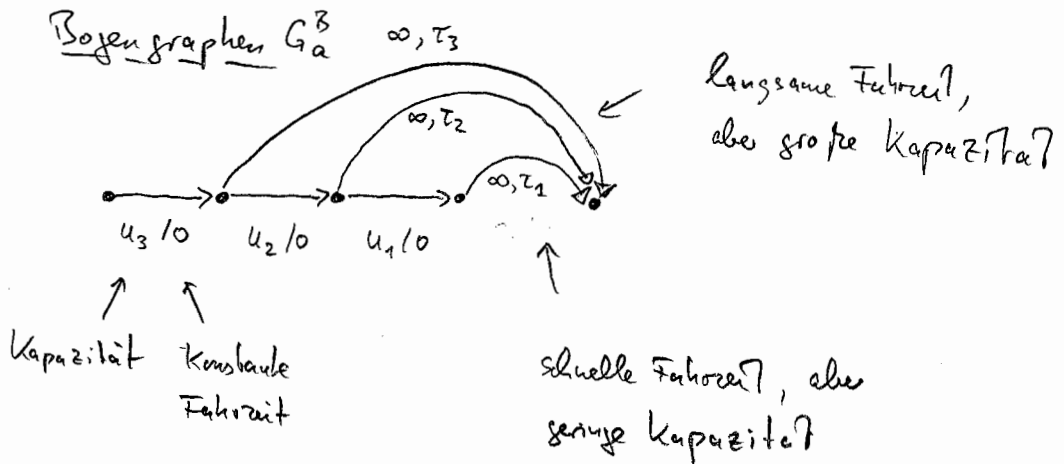 Bogengraphen G_a^B
∞, τ₃
langsame Fahrzeit,
aber große Kapazität
∞, τ₂
∞, τ₁
u₃ / 0
u₂ / 0
u₁ / 0
Kapazität
Konstante
Fahrzeit
schnelle Fahrzeit, aber
geringe Kapazität